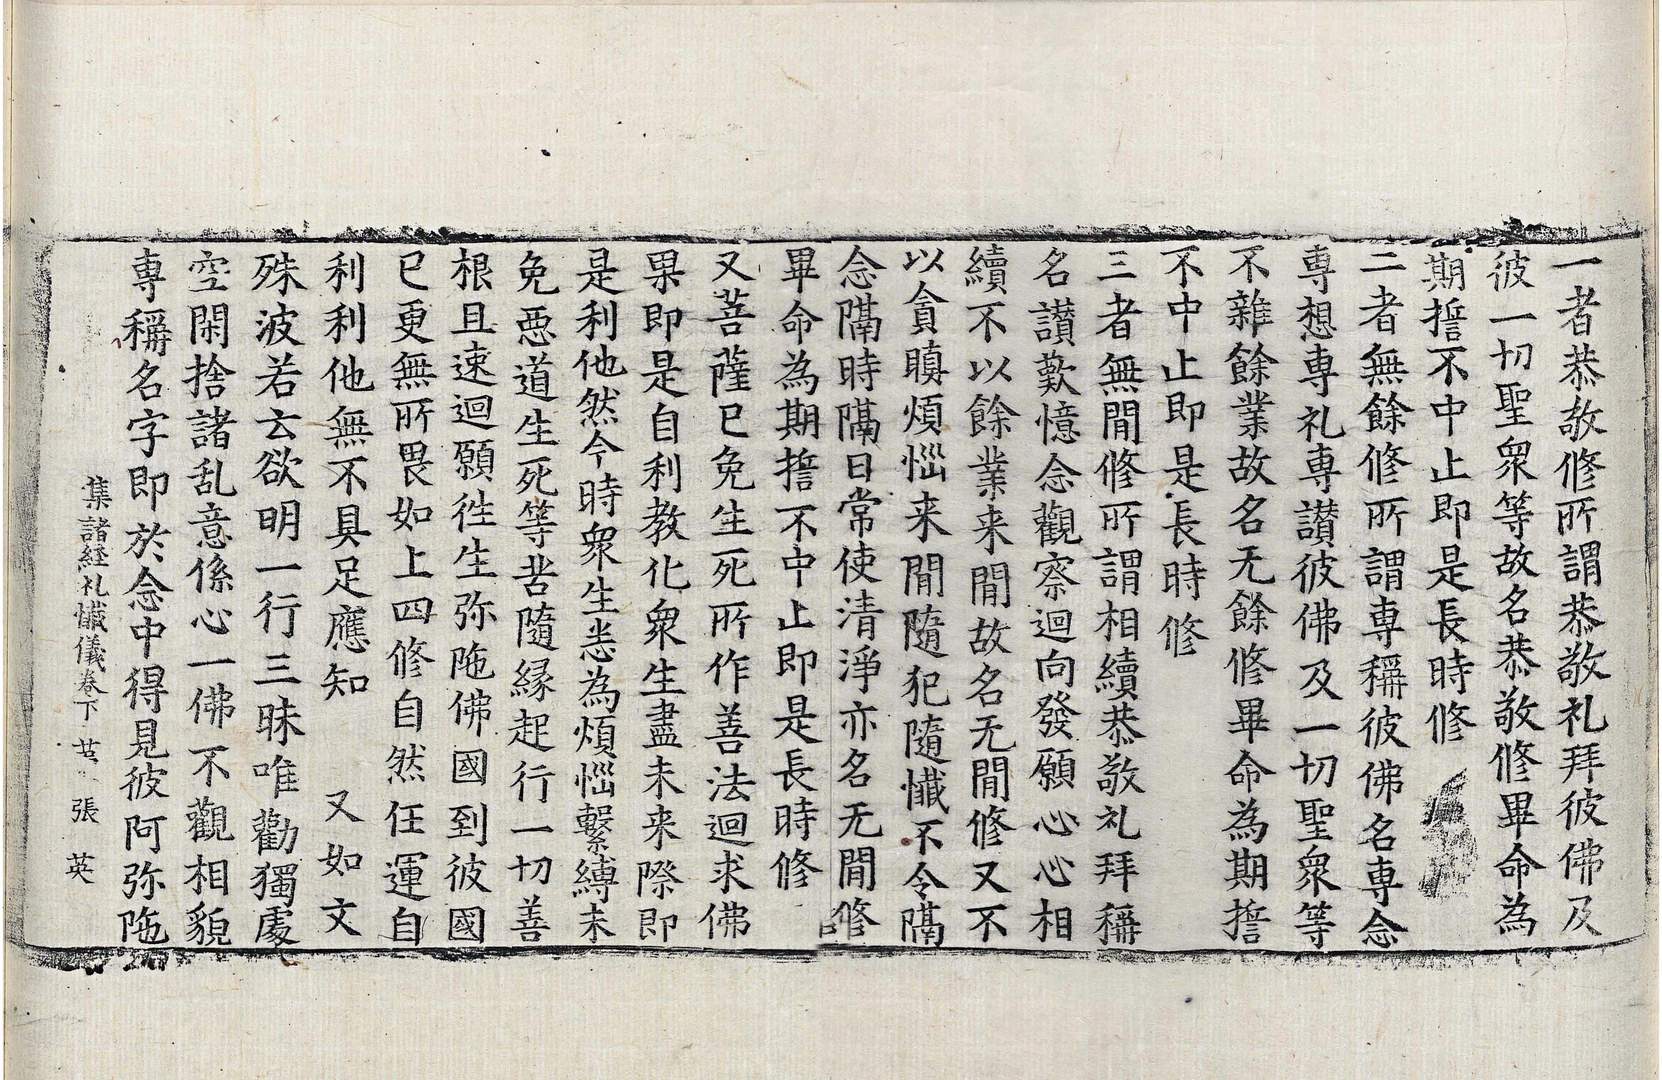 一者恭敬修所謂恭敬礼拜彼佛及
彼一切聖衆等故名恭敬修畢命為
期誓不中止即是長時修
二者無餘修所謂専稱彼佛名専念
専想専礼専讃彼佛及一切聖衆等
不雜餘業故名无餘修畢命為期誓
不中止即是長時修
三者無間修所謂相續恭敬礼拜稱
名讃歎憶念觀察迴向發願心心相
續不以餘業来間故名无間修又不
以貪瞋煩惱来間隨犯隨懺不令隔
念隔時隔日常使清淨亦名无間修
畢命為期誓不中止即是長時修
又菩薩已免生死所作善法迴求佛
果即是自利教化衆生盡未来際即
是利他然今時衆生悉為煩惱繫縛未
免悪道生死等苦隨縁起行一切善
根且速迴願徃生弥陁佛國到彼國
已更無所畏如上四修自然任運自
利利他無不具足應知 又如文
殊波若云欲明一行三昧唯勸獨處
空閑捨諸乱意係心一佛不觀相貌
専稱名字即於念中得見彼阿弥陁
集諸経礼懺儀卷下 張 英